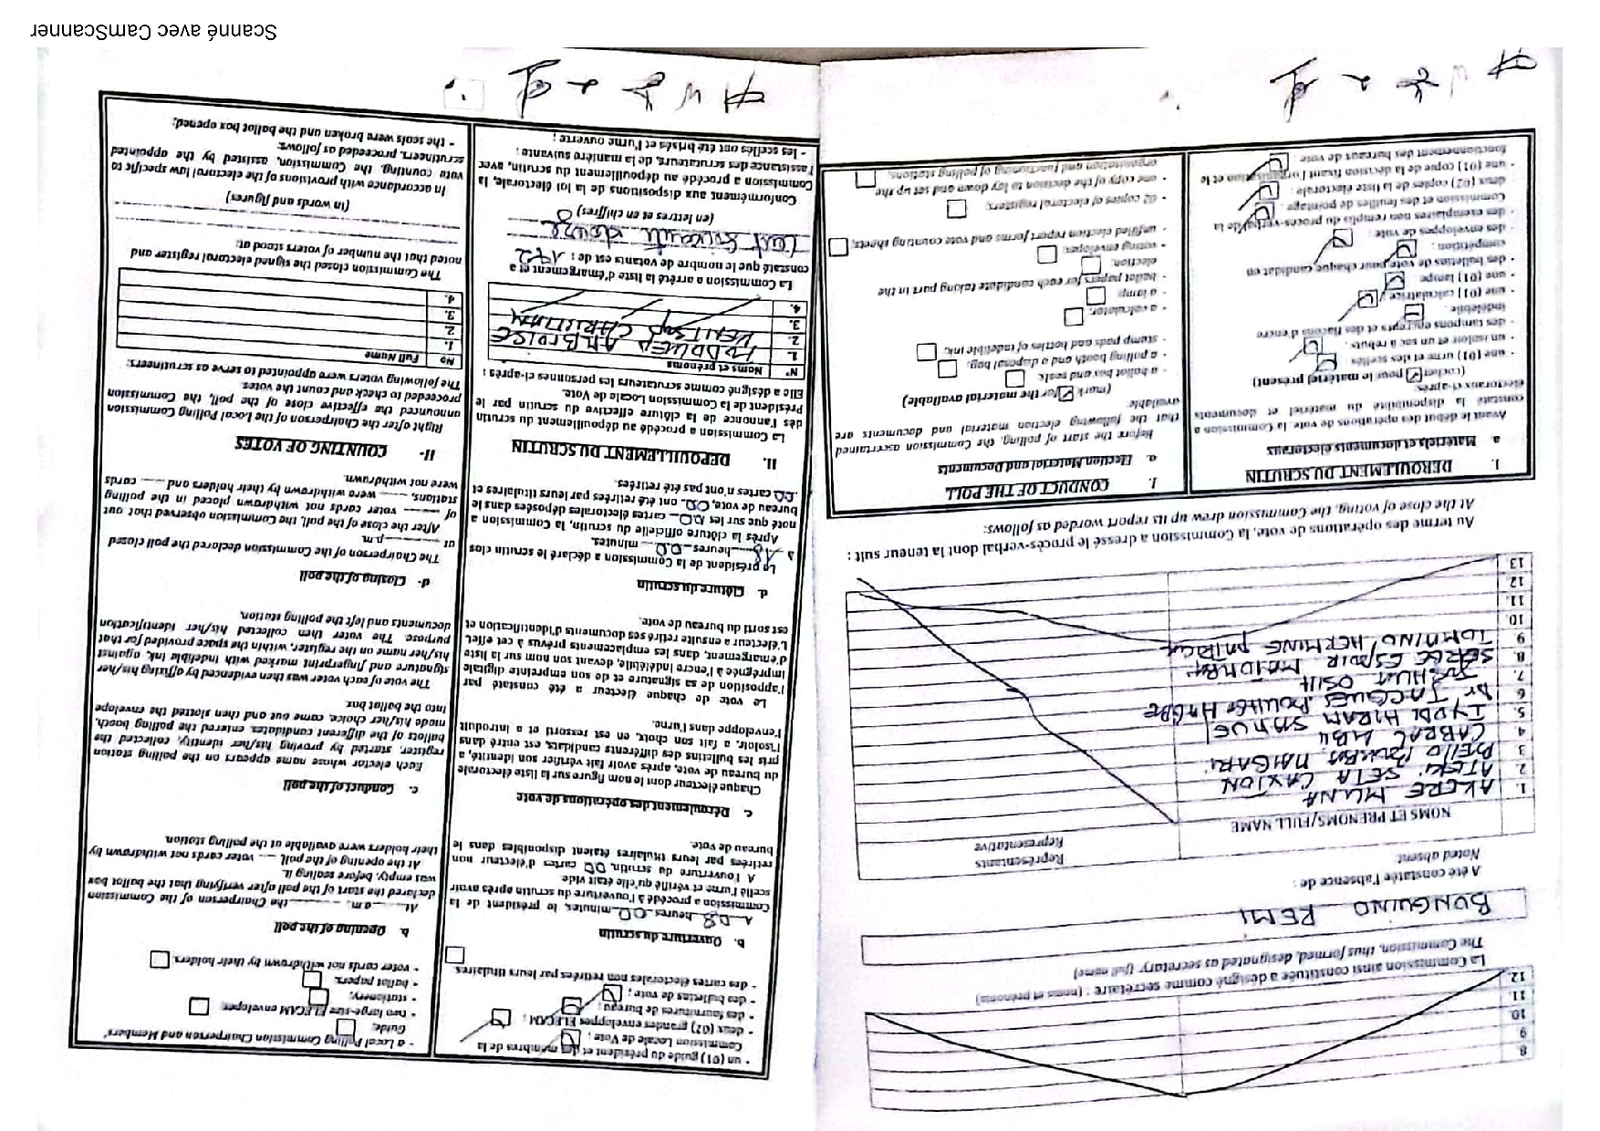 8
9
10
11.
12.
La Commission ainsi constituée a désigné comme secrétaire : (noms et prénoms)
The Commission, thus formed, designated as secretary: (full name)
BUNGUINO REMI
A été constatée l'absence de :
Noted absent:
NOMS ET PRENOMS/FULL NAME
Représentants
Representative
1. AKERE MUNA
2. ATEKI SETA CAXTON
3 BELLO BOUBA MAIGARI
4 CABRAL LIBII
5. IYODI HIRAM SAMUEL
6 Dr JACQUES BOUGHA HAGBE
7. JOSHUA OSIH
8. SERGE ESPOIR MATOMBA
9 TOMAINO HERMINE PATRICIA
10.
11.
12
13
Au terme des opérations de vote, la Commission a dressé le procès-verbal dont la teneur suit :
At the close of voting, the Commission drew up its report worded as follows:
I. DEROULEMENT DU SCRUTIN
a Matériels et documents électoraux
Avant le début des opérations de vote, la Commission a
constaté la disponibilité du matériel et documents
électoraux ci-après:
(cocher ☑ pour le matériel présent)
- une (01) urne et des scellés
- un isoloir et un sac à rebuts
- des tampons encreurs et des flacons d'encre
indélébile
- une (01) calculatrice
- une (01) lampe
- des bulletins de vote pour chaque candidat en
compétition
- des enveloppes de vote
- des exemplaires non remplis du procès-verbal de la
Commission et des feuilles de pointage
- deux (02) copies de la liste électorale
- une (01) copie de la décision fixant l'organisation et le
fonctionnement des bureaux de vote
I. CONDUCT OF THE POLL
a. Election Material and Documents
Before the start of polling, the Commission ascertained
that the following election material and documents are
available:
(mark ☑ for the material available)
- a ballot box and seals
- a polling booth and a disposal bag
- stamp pads and bottles of indelible ink
- a calculator
- a lamp
- ballot papers for each candidate taking part in the
election
- voting envelopes
- unfilled election report forms and vote counting sheets
- 02 copies of electoral registers
- one copy of the decision to lay down and set up the
organisation and functioning of polling stations
- un (01) guide du président et des membres de la
Commission Locale de Vote ;
- deux (02) grandes enveloppes ELECAM ;
- des fournitures de bureau ;
- des bulletins de vote ;
- des cartes électorales non retirées par leurs titulaires
b. Ouverture du scrutin
A 08 heures 00 minutes, le président de la
Commission a procédé à l'ouverture du scrutin après avoir
scellé l'urne et vérifié qu'elle était vide
A l'ouverture du scrutin, 00 cartes d'électeur non
retirées par leurs titulaires étaient disponibles dans le
bureau de vote.
c. Déroulement des opérations de vote
Chaque électeur dont le nom figure sur la liste électorale
du bureau de vote, après avoir fait vérifier son identité, a
pris les bulletins des différents candidats, est entré dans
l'isoloir, a fait son choix, en est ressorti et a introduit
l'enveloppe dans l'urne.
Le vote de chaque électeur a été constaté par
l'apposition de sa signature et de son empreinte digitale
imprégnée à l'encre indélébile, devant son nom sur la liste
d'émargement, dans les emplacements prévus à cet effet.
L'électeur a ensuite retiré ses documents d'identification et
est sorti du bureau de vote.
d. Clôture du scrutin
Le président de la Commission a déclaré le scrutin clos
à 18 heures 00 minutes.
Après la clôture officielle du scrutin, la Commission a
noté que sur les 00 cartes électorales déposées dans le
bureau de vote, 00 ont été retirées par leurs titulaires et
00 cartes n'ont pas été retirées.
II. DEPOUILLEMENT DU SCRUTIN
La Commission a procédé au dépouillement du scrutin
dès l'annonce de la clôture effective du scrutin par le
Président de la Commission Locale de Vote.
Elle a désigné comme scrutateurs les personnes ci-après :
N° Noms et prénoms
1. AMBROISE
2. CHRISTIAN
3.
4.
La Commission a arrêté la liste d'émargement et a
constaté que le nombre de votants est de : 172
Cent Soixante douze
(en lettres et en chiffres)
Conformément aux dispositions de la loi électorale, la
Commission a procédé au dépouillement du scrutin, avec
l'assistance des scrutateurs, de la manière suivante :
- les scellés ont été brisés et l'urne ouverte ;
- a Local Polling Commission Chairperson and Members'
Guide;
- two large-size ELECAM envelopes
- stationery;
- ballot papers
- voter cards not withdrawn by their holders
b. Opening of the poll
At a.m. the Chairperson of the Commission
declared the start of the poll after verifying that the ballot box
was empty, before sealing it.
At the opening of the poll, voter cards not withdrawn by
their holders were available at the polling station.
c. Conduct of the poll
Each elector whose name appears on the polling station
register, started by proving his/her identity, collected the
ballots of the different candidates, entered the polling booth,
made his/her choice, came out and then slotted the envelope
into the ballot box.
The vote of each voter was then evidenced by affixing his/her
signature and fingerprint marked with indelible ink, against
his/her name on the register, within the space provided for that
purpose. The voter then collected his/her identification
documents and left the polling station.
d- Closing of the poll
The Chairperson of the Commission declared the poll closed
at p.m.
After the close of the poll, the Commission observed that out
of voter cards not withdrawn placed in the polling
stations, were withdrawn by their holders and cards
were not withdrawn.
II- COUNTING OF VOTES
Right after the Chairperson of the Local Polling Commission
announced the effective close of the poll, the Commission
proceeded to check and count the votes.
The following voters were appointed to serve as scrutineers:
No Full Name
1.
2.
3.
4.
The Commission closed the signed electoral register and
noted that the number of voters stood at:
(in words and figures)
In accordance with provisions of the electoral law specific to
vote counting, the Commission, assisted by the appointed
scrutineers, proceeded as follows:
- the seals were broken and the ballot box opened;
Scanné avec CamScanner